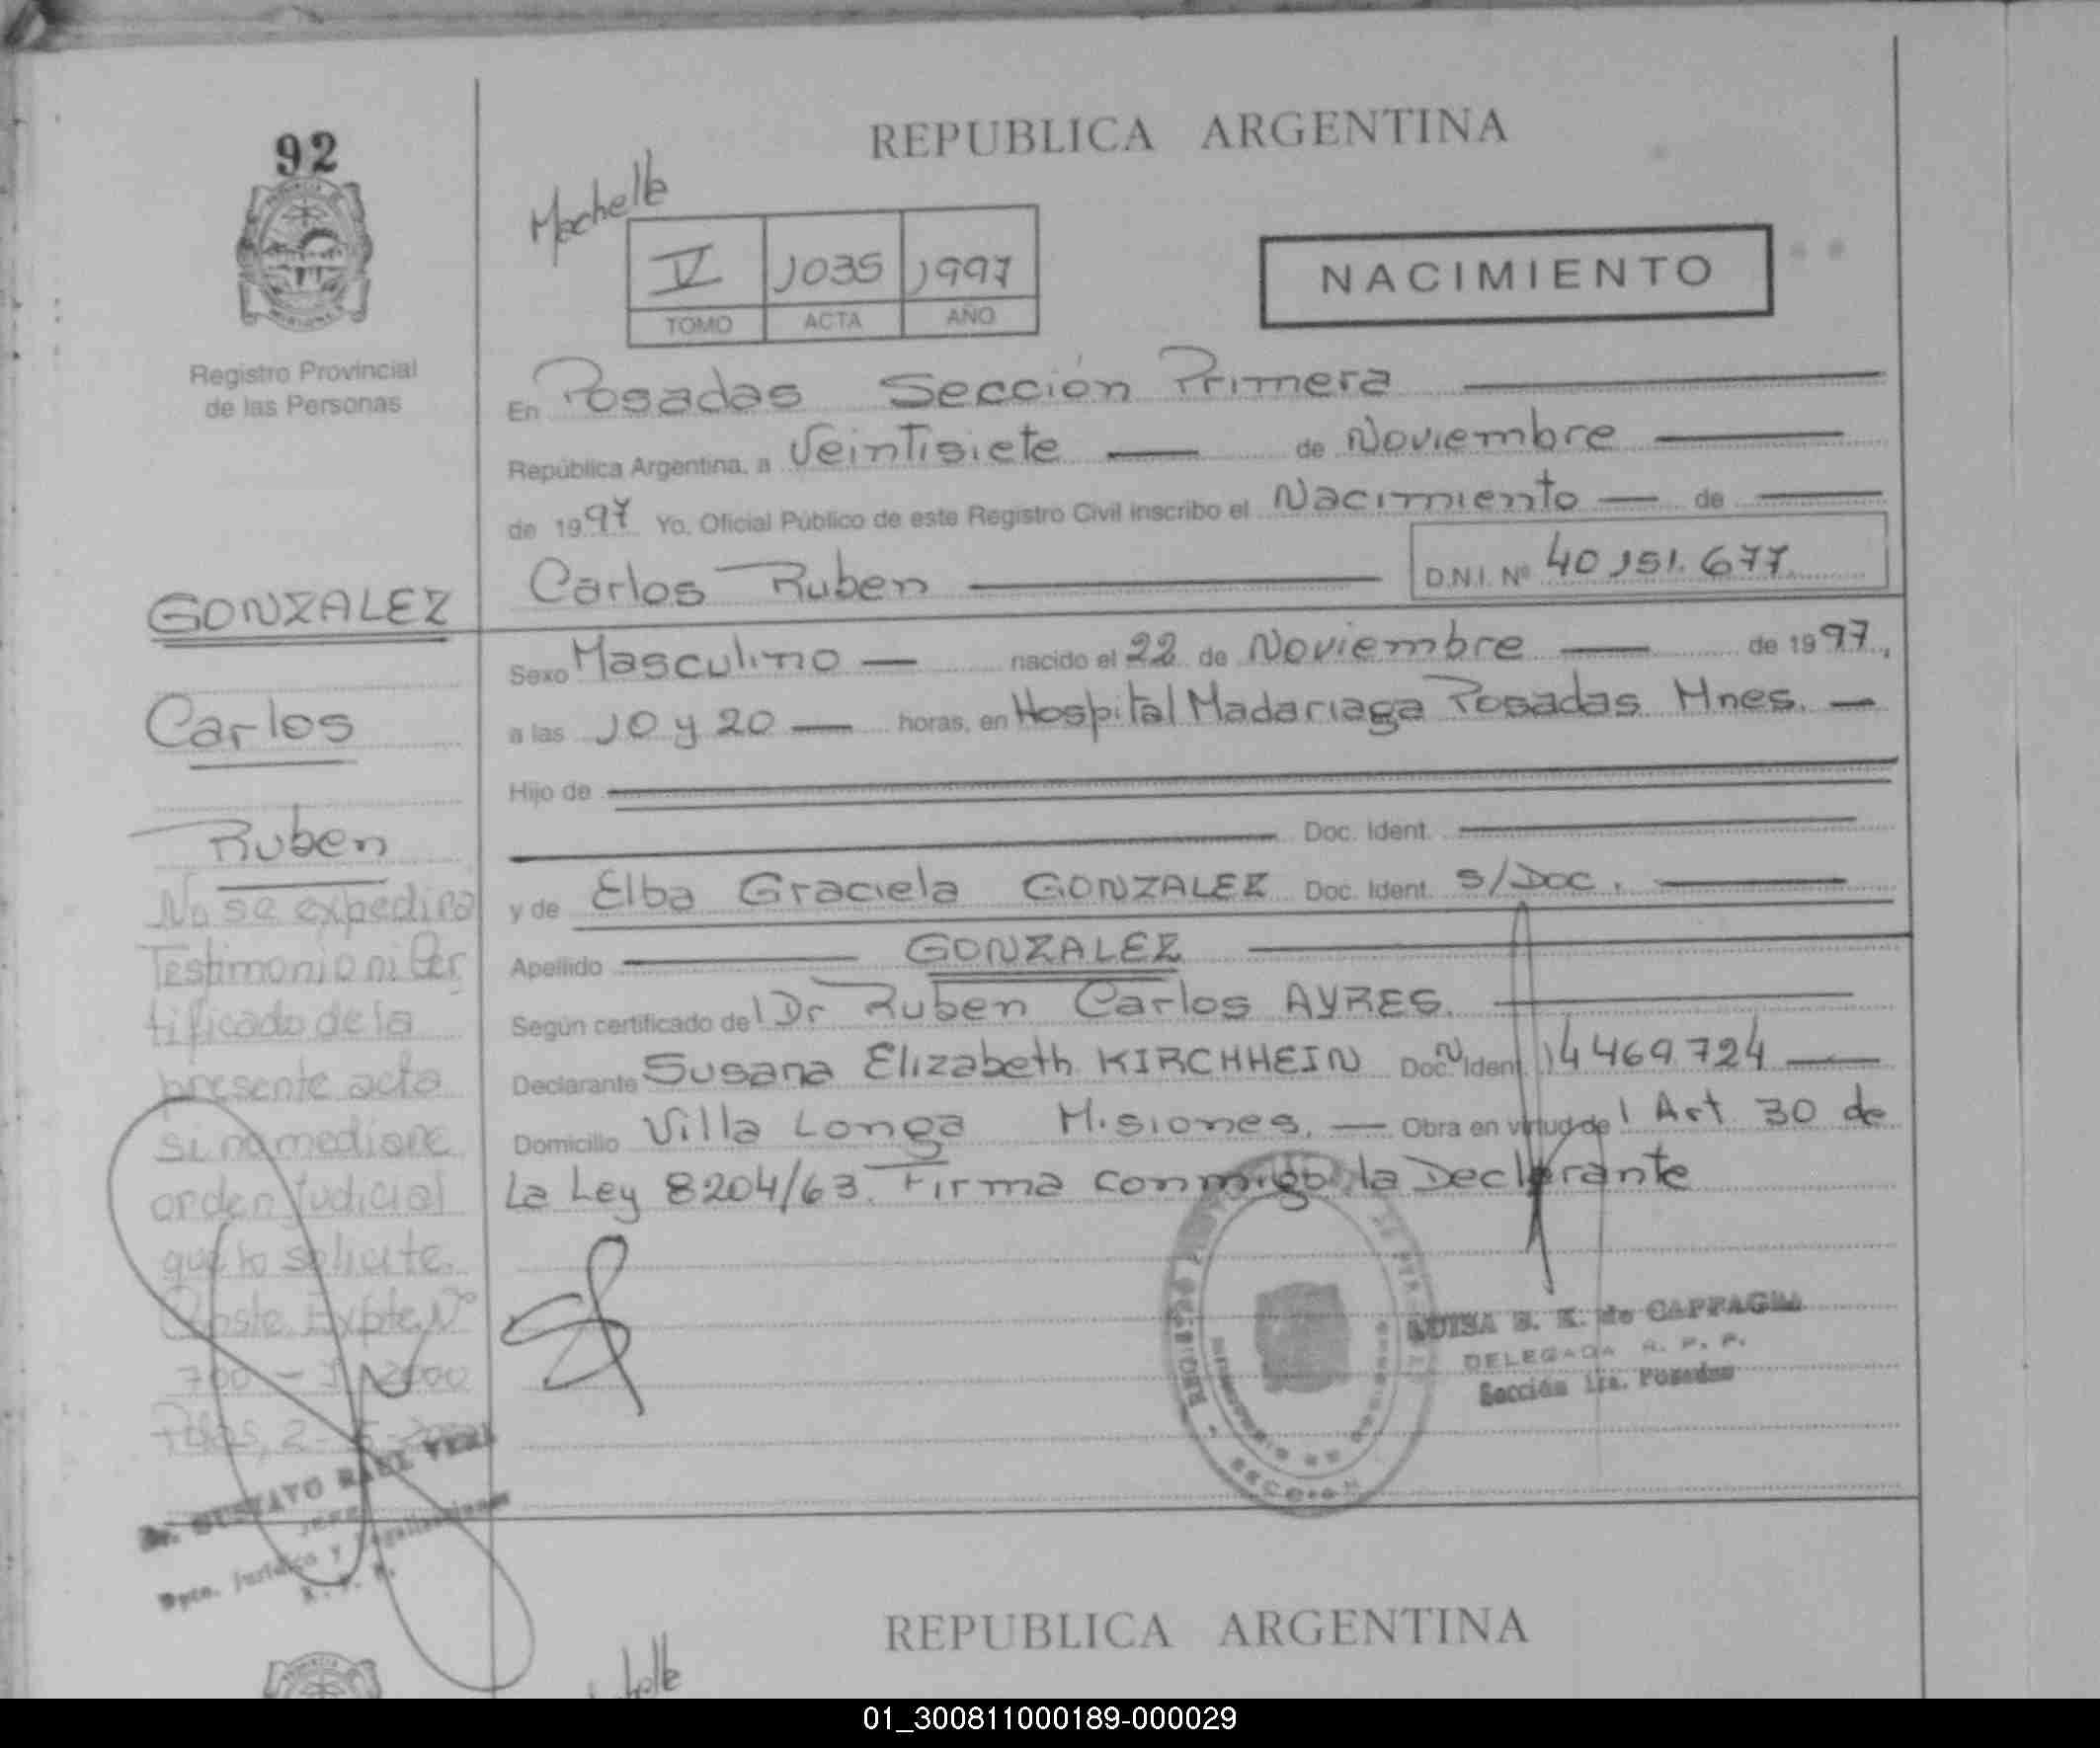 92
Registro Provincial
de las Personas
GONZALEZ
Carlos
Ruben
No se expedira
Testimonio ni Cer
tificado de la
presente acta
si no mediare
orden Judicial
que lo solicite.
Expte Nº
2000
Dr. GUSTAVO RAUL VERA
Dpto. Jurídico y Legalizaciones
REPUBLICA ARGENTINA
V 1035 1997
TOMO ACTA AÑO
NACIMIENTO
En Posadas Sección Primera
República Argentina, a Veintisiete de Noviembre
de 1997 Yo, Oficial Público de este Registro Civil inscribo el Nacimiento de
Carlos Ruben D.N.I. Nº 40.151.677
Sexo Masculino nacido el 22 de Noviembre de 1997,
a las 10 y 20 horas, en Hospital Madariaga Posadas Mnes.
Hijo de
Doc. Ident.
y de Elba Graciela GONZALEZ Doc. Ident. S/Doc.
Apellido GONZALEZ
Según certificado del Dr Ruben Carlos AYRES.
Declarante Susana Elizabeth KIRCHHEIN Doc. N Ident. 14469.724
Domicilio Villa Longa Misiones. Obra en virtud del Art 30 de
La Ley 8204/63. Firma conmigo la Declarante
LUISA E. K. de CAFFAGNI
DELEGADA R. P. P.
Sección 1ra. Posadas
REPUBLICA ARGENTINA
01_300811000189-000029